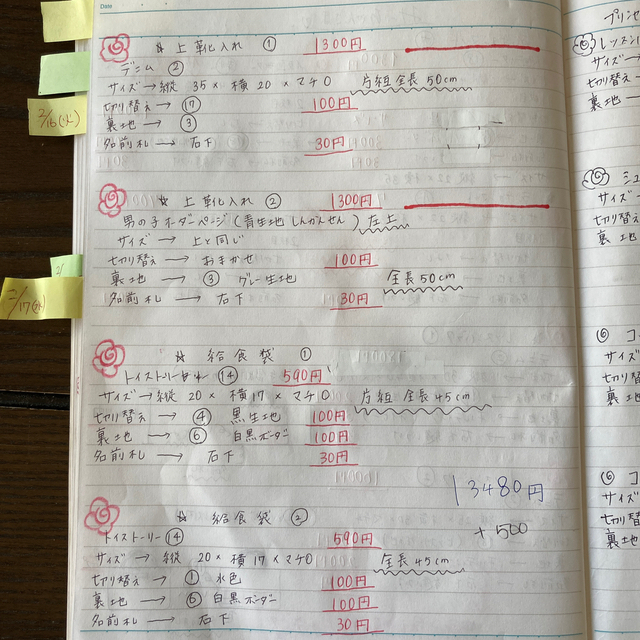 Date
☆ 上靴入れ ① 1300円
デニム ②
サイズ → 縦 35 × 横 20 × マチ0 片紐全長50cm
切り替え → ⑰ 100円
裏地 → ③
名前札 → 右下 30円
☆ 上靴入れ ② 1300円
男の子オーダーページ(青生地しんかんせん) 左上
サイズ → 上と同じ
切り替え → おまかせ 100円
裏地 → ③ グレー生地 全長50cm
名前札 → 右下 30円
☆ 給食袋 ①
トイストーリー ⑭ 590円
サイズ → 縦 20 × 横17 × マチ0 片紐 全長45cm
切り替え → ④ 黒生地 100円
裏地 → ⑥ 白黒ボーダー 100円
名前札 → 右下 30円
13480円
+500
☆ 給食袋 ②
トイストーリー ⑭ 590円
サイズ → 縦 20 × 横17 × マチ0 全長45cm
切り替え → ① 水色 100円
裏地 → ⑥ 白黒ボーダー 100円
名前札 → 右下 30円
2/16(火)
2/
2/17(水)
プリンセ
レッスン
サイズ→
切り替え
裏地→
⑤ シュ
サイズ
切り替え
裏地
⑥ コ
サイズ
切り替え
裏地
⑥ コ
サイズ
切り替え
裏地